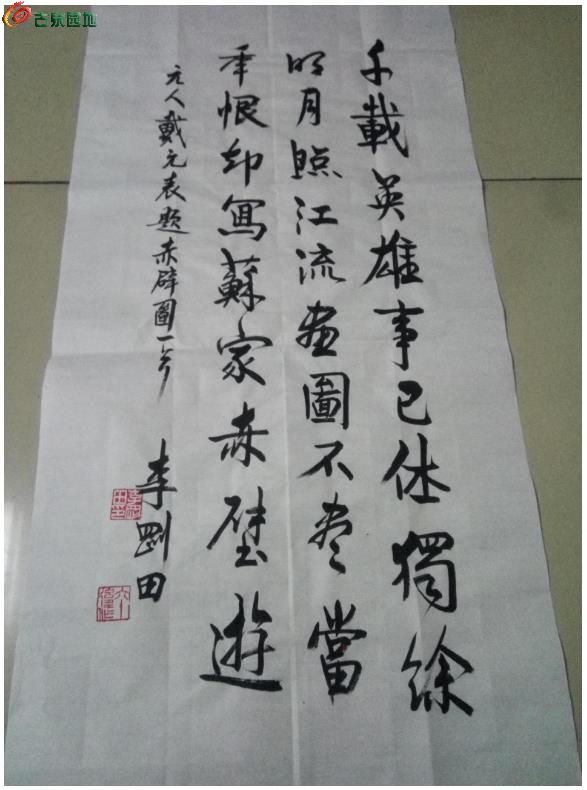 古泉园地
千載英雄事已休獨餘
明月照江流畫圖不盡當
年恨却寫蘇家赤壁遊
元人戴元表題赤辟圖一首
李剛田